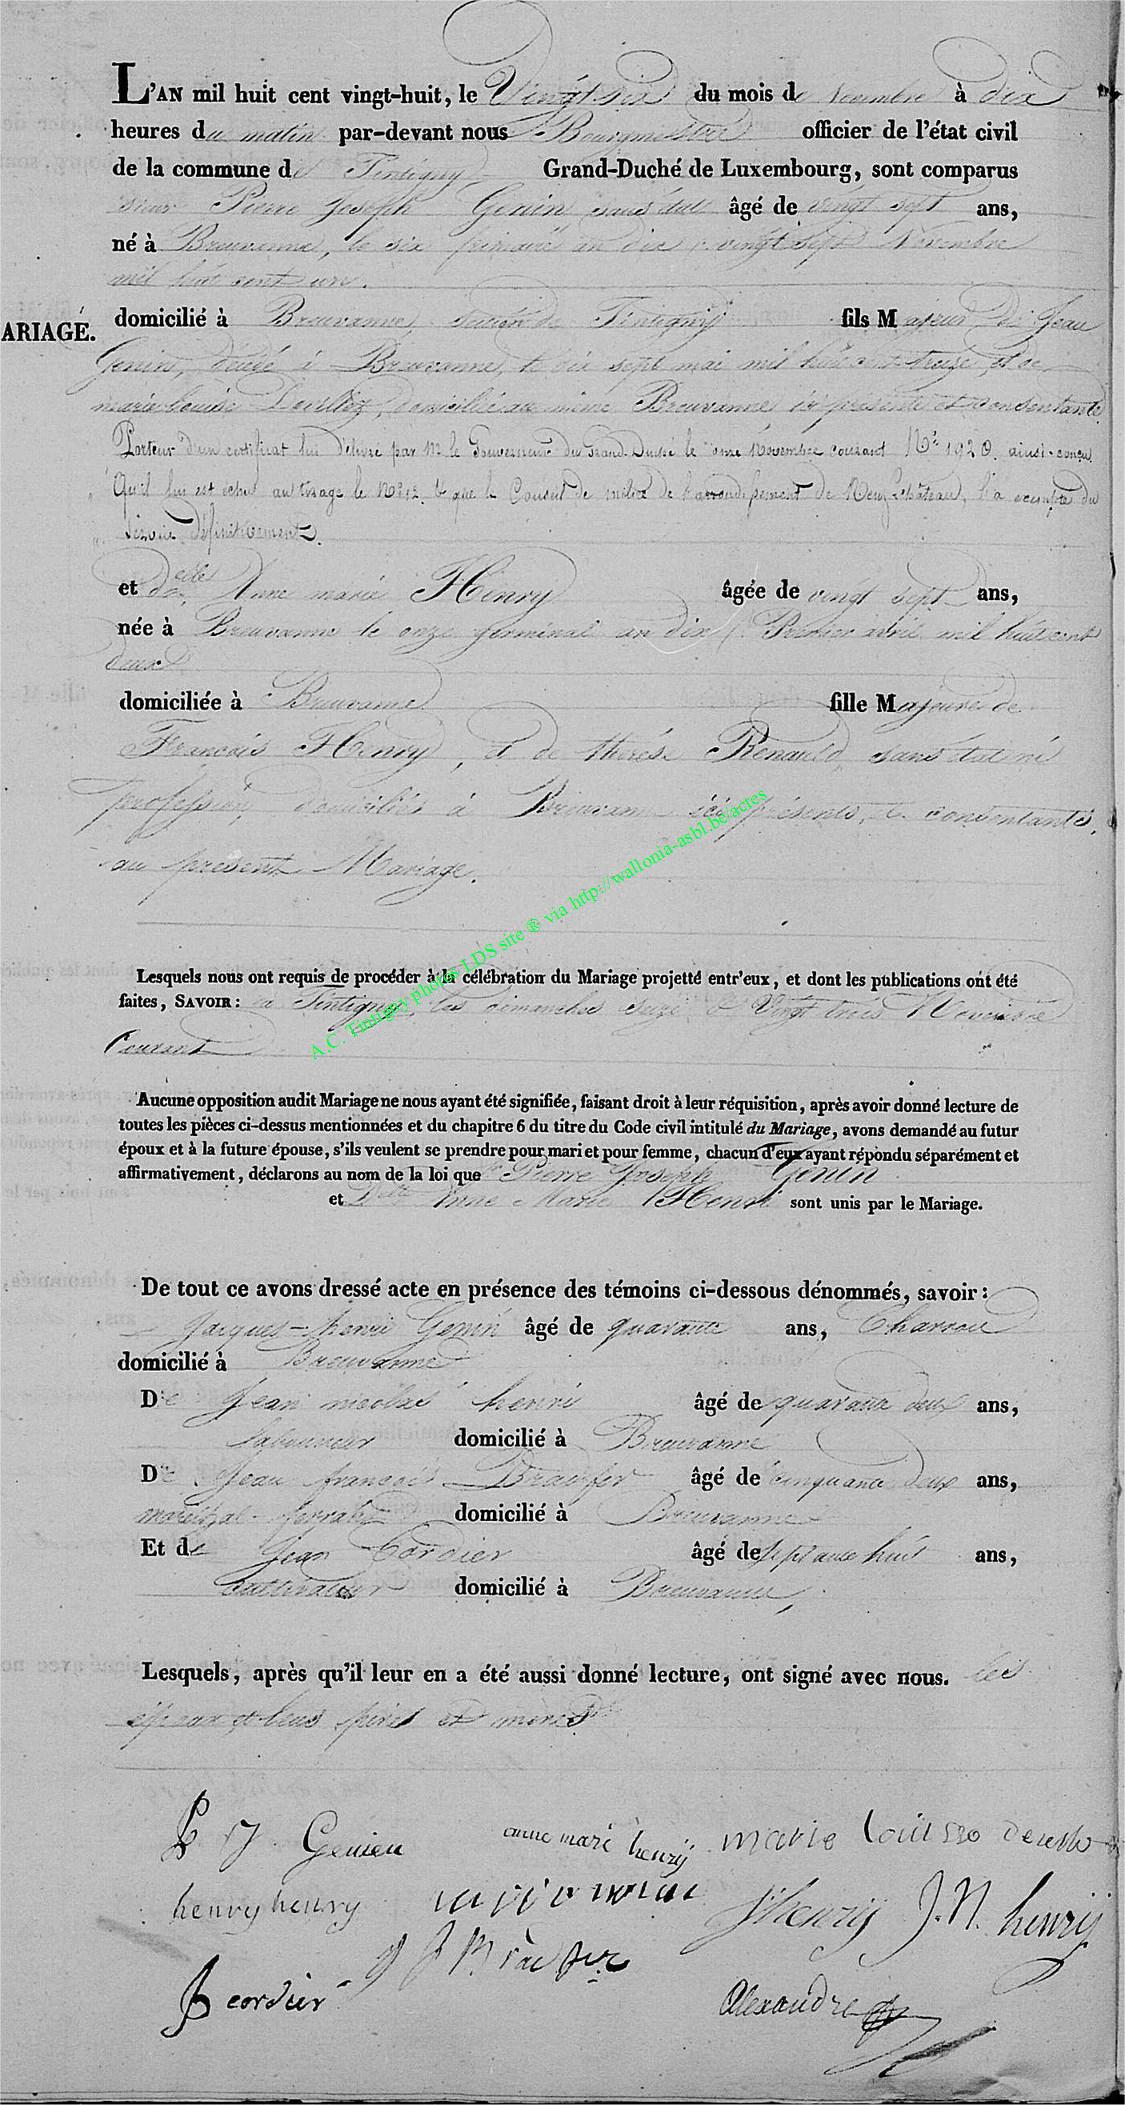 L'AN mil huit cent vingt-huit, le Vingt six du mois de Novembre à dix
heures du matin par-devant nous Bourgmestre officier de l'état civil
de la commune de Tintigny, Grand-Duché de Luxembourg, sont comparus
sieur Pierre Joseph Genin sans état âgé de vingt sept ans,
né à Breuvanne, le six frimaire an dix (vingt sept Novembre
mil huit cent un.
ARIAGE.
domicilié à Breuvanne, section de Tintigny fils Majeur de Jean
Genin, décédé à Breuvanne, le dix sept mai mil huit cent treize, et de
marie louise domiciliée au même Breuvanne ici présente et consentante
Porteur d'un certificat lui délivré par Mr le Gouverneur du Grand-Duché le onze Novembre courant No 1920. ainsi conçu
Qu'il lui est échu au tirage le No 12. & que le Conseil de milice de l'arrondissement de Neufchâteau, l'a exempté du
Service définitivement.
et delle Anne marie Henry âgée de vingt sept ans,
née à Breuvanne le onze germinal an dix (Premier avril mil huit cent
deux)
domiciliée à Breuvanne fille Majeure de
François Henry, et de thérèse Renauld, sans état ni
profession, domiciliés à Breuvanne ici présents, et consentants,
au présent Mariage.
Lesquels nous ont requis de procéder à la célébration du Mariage projetté entr'eux, et dont les publications ont été
faites, SAVOIR: à Tintigny les dimanches seize & Vingt trois Novembre
Courant
Aucune opposition audit Mariage ne nous ayant été signifiée, faisant droit à leur réquisition, après avoir donné lecture de
toutes les pièces ci-dessus mentionnées et du chapitre 6 du titre du Code civil intitulé du Mariage, avons demandé au futur
époux et à la future épouse, s'ils veulent se prendre pour mari et pour femme, chacun d'eux ayant répondu séparément et
affirmativement, déclarons au nom de la loi que Pierre Joseph Genin
et Delle Anne Marie Henri sont unis par le Mariage.
De tout ce avons dressé acte en présence des témoins ci-dessous dénommés, savoir:
Jacques-henri Genin âgé de quarante ans, Charron
domicilié à Breuvanne
De Jean nicolas henri âgé de quarante deux ans,
laboureur domicilié à Breuvanne
De Jean françois âgé de cinquante deux ans,
maréchal ferrant domicilié à Breuvanne
Et de Jean Cordier âgé de septante huit ans,
cultivateur domicilié à Breuvanne,
Lesquels, après qu'il leur en a été aussi donné lecture, ont signé avec nous. les
époux et leurs pères et mères
P J Genien anne marie henrÿ marie louisse
henry henry fhenrÿ J. N. henrÿ
J cordier Alexandre
A.C. Tintigny photos LDS site ® via http://wallonia-asbl.be/actes